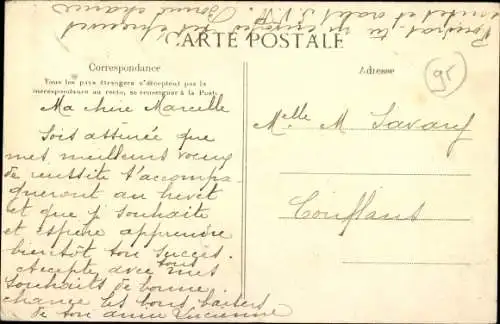 CARTE POSTALE
Correspondance
Tous les pays étrangers n'acceptent pas la
correspondance au recto, se renseigner à la Poste
Adresse
95
Ma chère Marcelle
Sois assurée que
mes meilleurs voeux
de reussite t'accompa
gneront au brevet
et que je souhaite
et espère apprendre
bientôt ton succès.
Accepte avec tous mes
souhaits de bonne
chance les bons baisers
de ton amie Lucienne
Melle M
Conflans
Bonne chance